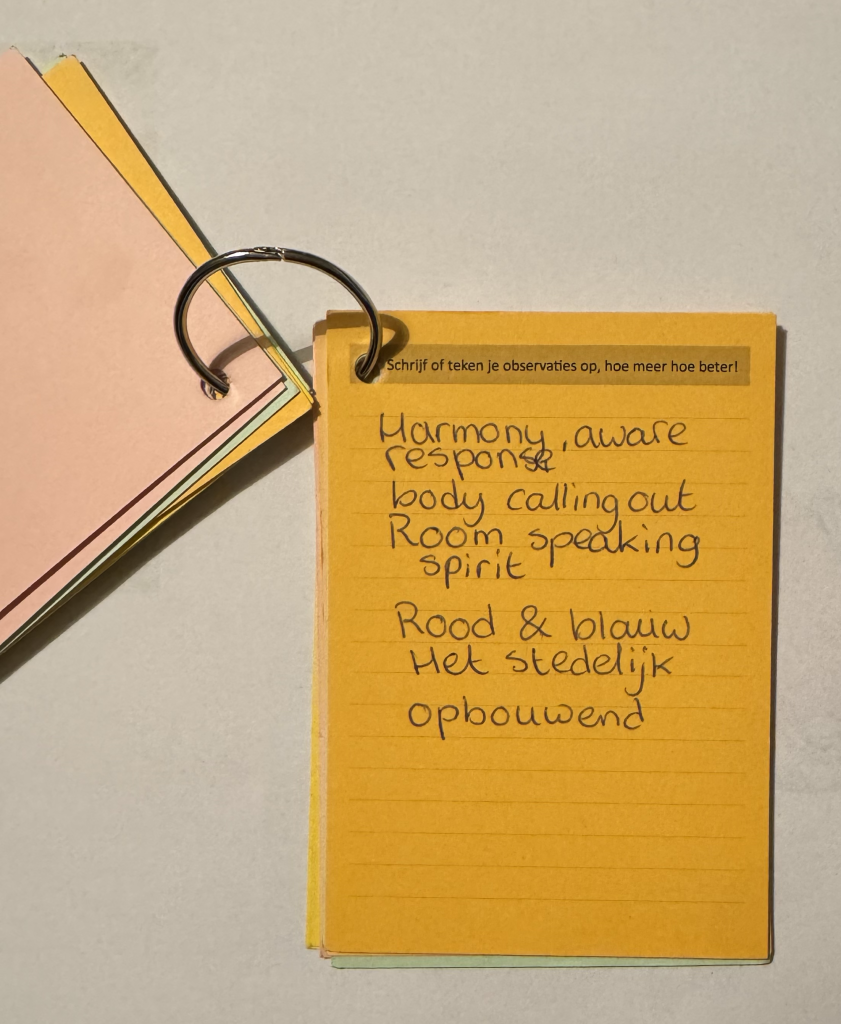 Schrijf of teken je observaties op, hoe meer hoe beter!
Harmony, aware
response
body calling out
Room speaking
spirit
Rood & blauw
Het stedelijk
opbouwend